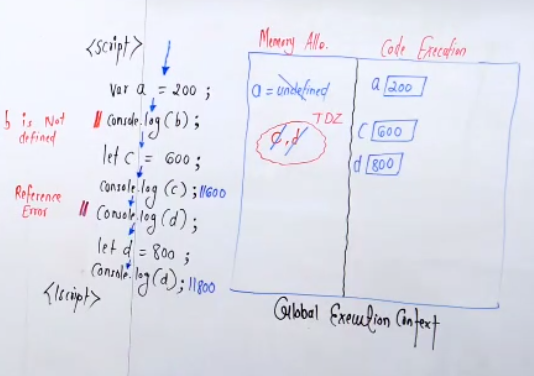 <script>
var a = 200 ;
b is Not defined
// console.log(b) ;
let c = 600 ;
console.log (c) ; //600
Reference Error
// console.log (d) ;
let d = 800 ;
console.log (d) ; //800
</script>
Memory Allo.
Code Execution
a = undefined
a 200
TDZ
c, d
c 600
d 800
Global Execution Context